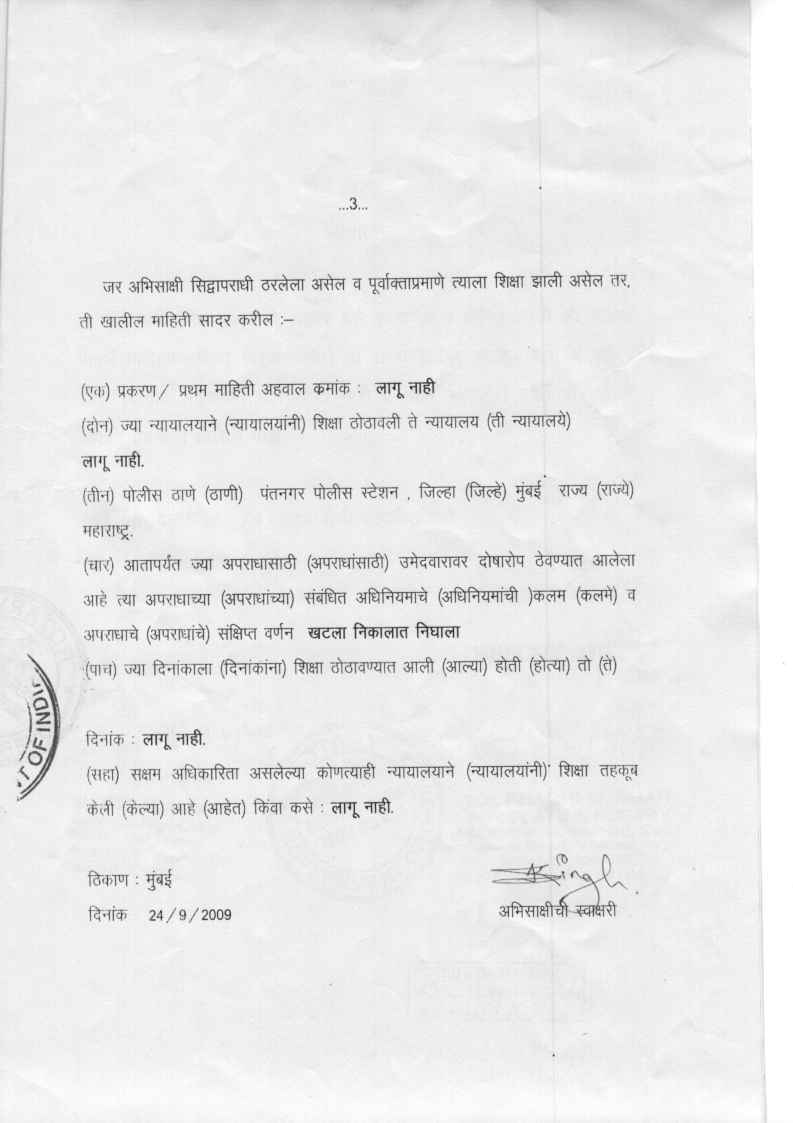 ...3...
जर अभिसाक्षी सिद्वापराधी ठरलेला असेल व पूर्वाक्ताप्रमाणे त्याला शिक्षा झाली असेल तर,
ती खालील माहिती सादर करील :–
(एक) प्रकरण / प्रथम माहिती अहवाल कमांक : लागू नाही
(दोन) ज्या न्यायालयाने (न्यायालयांनी) शिक्षा ठोठावली ते न्यायालय (ती न्यायालये)
लागू नाही.
(तीन) पोलीस ठाणे (ठाणी) पंतनगर पोलीस स्टेशन , जिल्हा (जिल्हे) मुंबई राज्य (राज्ये)
महाराष्ट्र.
(चार) आतापर्यंत ज्या अपराधासाठी (अपराधांसाठी) उमेदवारावर दोषारोप ठेवण्यात आलेला
आहे त्या अपराधाच्या (अपराधांच्या) संबंधित अधिनियमाचे (अधिनियमांची )कलम (कलमे) व
अपराधाचे (अपराधांचे) संक्षिप्त वर्णन खटला निकालात निघाला
(पाच) ज्या दिनांकाला (दिनांकांना) शिक्षा ठोठावण्यात आली (आल्या) होती (होत्या) तो (ते)
दिनांक : लागू नाही.
(सहा) सक्षम अधिकारिता असलेल्या कोणत्याही न्यायालयाने (न्यायालयांनी) शिक्षा तहकूब
केली (केल्या) आहे (आहेत) किंवा कसे : लागू नाही.
ठिकाण : मुंबई
दिनांक 24 / 9 / 2009
Singh
अभिसाक्षीची स्वाक्षरी
OF INDIA